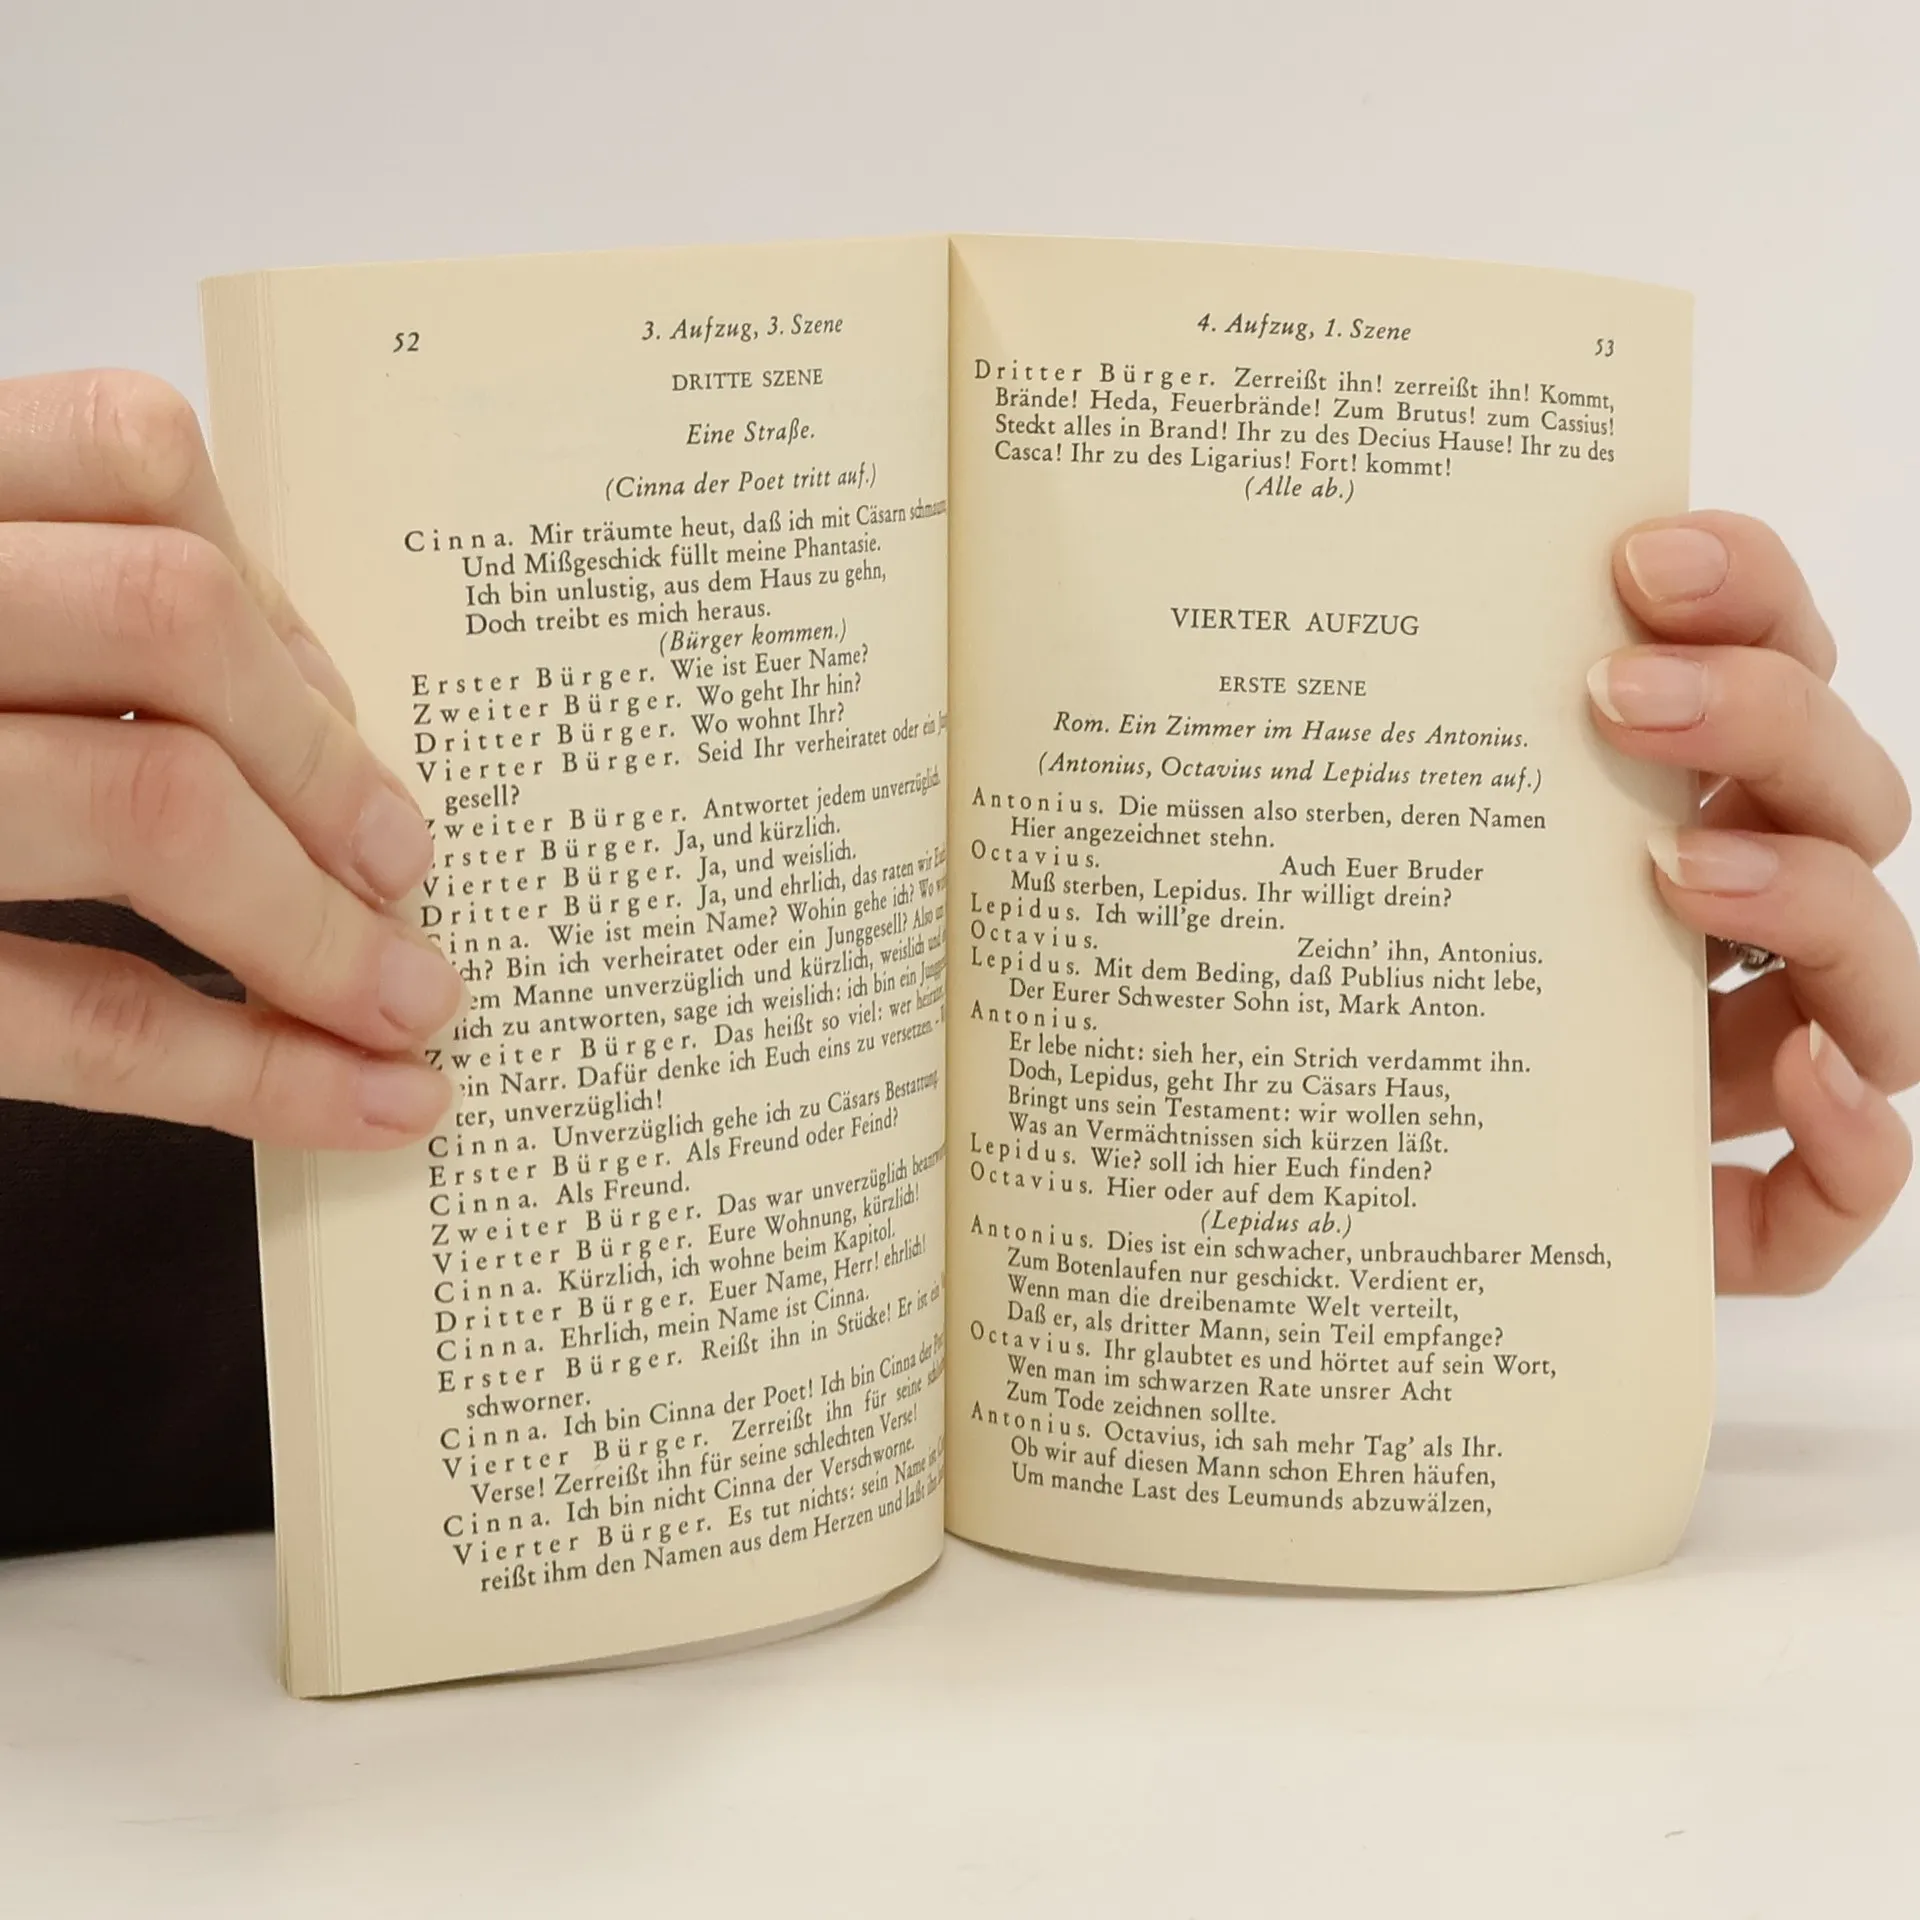 52
3. Aufzug, 3. Szene
DRITTE SZENE
Eine Straße.
(Cinna der Poet tritt auf.)
Cinna. Mir träumte heut, daß ich mit Cäsarn
Und Mißgeschick füllt meine Phantasie.
Ich bin unlustig, aus dem Haus zu gehn,
Doch treibt es mich heraus.
(Bürger kommen.)
Erster Bürger. Wie ist Euer Name?
Zweiter Bürger. Wo geht Ihr hin?
Dritter Bürger. Wo wohnt Ihr?
Vierter Bürger. Seid Ihr verheiratet oder ein
gesell?
Zweiter Bürger. Antwortet jedem unverzüglich.
Erster Bürger. Ja, und kürzlich.
Vierter Bürger. Ja, und weislich.
Dritter Bürger. Ja, und ehrlich, das raten wir
Cinna. Wie ist mein Name? Wohin gehe ich? Wo
ich? Bin ich verheiratet oder ein Junggesell? Also
Manne unverzüglich und kürzlich, weislich und
zu antworten, sage ich weislich: ich bin ein
Zweiter Bürger. Das heißt so viel: wer
ein Narr. Dafür denke ich Euch eins zu versetzen. –
ter, unverzüglich!
Cinna. Unverzüglich gehe ich zu Cäsars Bestattung.
Erster Bürger. Als Freund oder Feind?
Cinna. Als Freund.
Zweiter Bürger. Das war unverzüglich
Vierter Bürger. Eure Wohnung, kürzlich!
Cinna. Kürzlich, ich wohne beim Kapitol.
Dritter Bürger. Euer Name, Herr! ehrlich!
Cinna. Ehrlich, mein Name ist Cinna.
Erster Bürger. Reißt ihn in Stücke! Er ist ein
schworner.
Cinna. Ich bin Cinna der Poet! Ich bin Cinna der
Vierter Bürger. Zerreißt ihn für seine
Verse! Zerreißt ihn für seine schlechten Verse!
Cinna. Ich bin nicht Cinna der Verschworne.
Vierter Bürger. Es tut nichts: sein Name ist
reißt ihm den Namen aus dem Herzen und laßt ihn
4. Aufzug, 1. Szene
53
Dritter Bürger. Zerreißt ihn! zerreißt ihn! Kommt,
Brände! Heda, Feuerbrände! Zum Brutus! zum Cassius!
Steckt alles in Brand! Ihr zu des Decius Hause! Ihr zu des
Casca! Ihr zu des Ligarius! Fort! kommt!
(Alle ab.)
VIERTER AUFZUG
ERSTE SZENE
Rom. Ein Zimmer im Hause des Antonius.
(Antonius, Octavius und Lepidus treten auf.)
Antonius. Die müssen also sterben, deren Namen
Hier angezeichnet stehn.
Octavius. Auch Euer Bruder
Muß sterben, Lepidus. Ihr willigt drein?
Lepidus. Ich will'ge drein.
Octavius. Zeichn' ihn, Antonius.
Lepidus. Mit dem Beding, daß Publius nicht lebe,
Der Eurer Schwester Sohn ist, Mark Anton.
Antonius.
Er lebe nicht: sieh her, ein Strich verdammt ihn.
Doch, Lepidus, geht Ihr zu Cäsars Haus,
Bringt uns sein Testament: wir wollen sehn,
Was an Vermächtnissen sich kürzen läßt.
Lepidus. Wie? soll ich hier Euch finden?
Octavius. Hier oder auf dem Kapitol.
(Lepidus ab.)
Antonius. Dies ist ein schwacher, unbrauchbarer Mensch,
Zum Botenlaufen nur geschickt. Verdient er,
Wenn man die dreibenamte Welt verteilt,
Daß er, als dritter Mann, sein Teil empfange?
Octavius. Ihr glaubtet es und hörtet auf sein Wort,
Wen man im schwarzen Rate unsrer Acht
Zum Tode zeichnen sollte.
Antonius. Octavius, ich sah mehr Tag' als Ihr.
Ob wir auf diesen Mann schon Ehren häufen,
Um manche Last des Leumunds abzuwälzen,